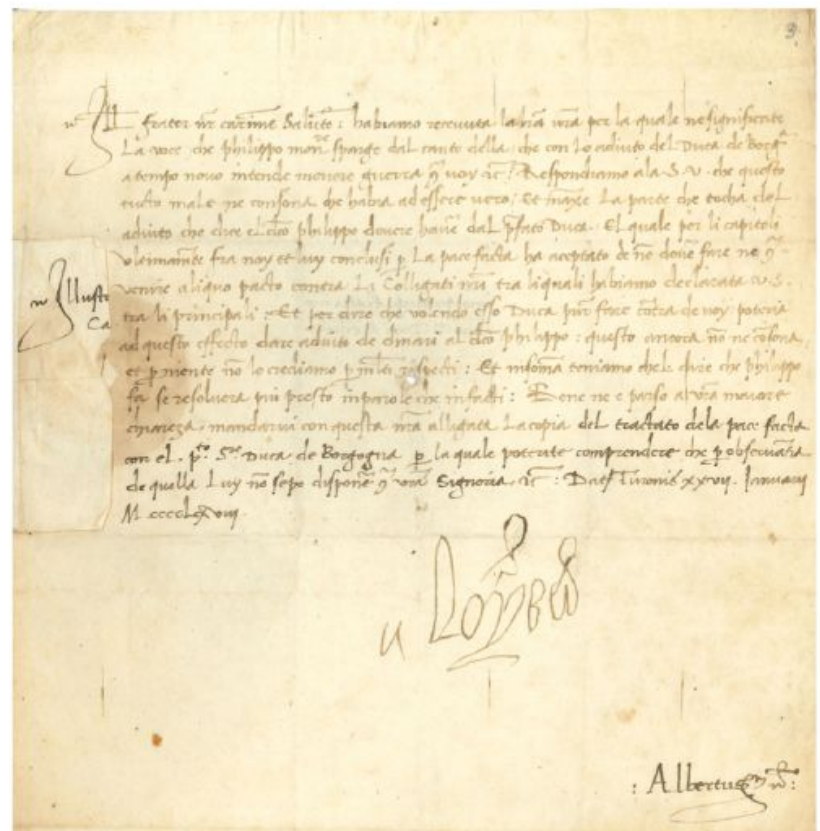 3
Ill frater nr carime Salute: habiamo recevuta la lra vra per la quale ne significate
La voce che philippo mon^re sparge dal canto della, che con lo adiuto del Duca de Borg^a
a tempo novo intende movere guerra a voy &c: Respondiamo ala S. V. che questo
tucto male ne consona che habia ad essere vero, Et maxe La parte che tocha del
adiuto che dice el dco philippo dovere havere dal pfato Duca. El quale per li capitoli
fra noy et luy conclusi p La pace facta ha aceptato de no dovere fare ne
venire aliquo pacto contra La Colligati nri tra liquali habiamo declarata v. S.
tra li principali Et per dire che volendo esso Duca pur fare contra de noy, poteria
ad questo effecto dare adiuto de dinari al dco philippo: questo ancora no ne consona,
et p niente no lo crediamo p molti respecti: Et insoma teniamo che dire che philippo
fa se resolvera piu presto in parole che in facti: Bene ne e parso a vra maiore
chiareza, mandarvi con questa nra alligata La copia del tractato dela pace facta
con el p^to S^or Duca de Borgogna p la quale potrete comprendere che p observantia
de quella Luy no sepo disponere vra Signoria &c: Dat Turonis xxvii. Ianuarii
M cccclxviii
Illust
Ca
Loyses
: Albertus :